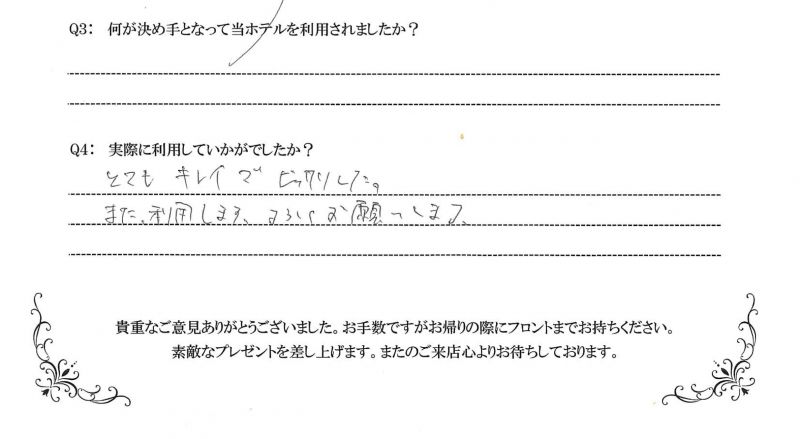 Q3： 何が決め手となって当ホテルを利用されましたか？
Q4： 実際に利用していかがでしたか？
とても キレイで ビックリした。
また、利用します、よろしくお願いします、
貴重なご意見ありがとうございました。お手数ですがお帰りの際にフロントまでお持ちください。
素敵なプレゼントを差し上げます。またのご来店心よりお待ちしております。